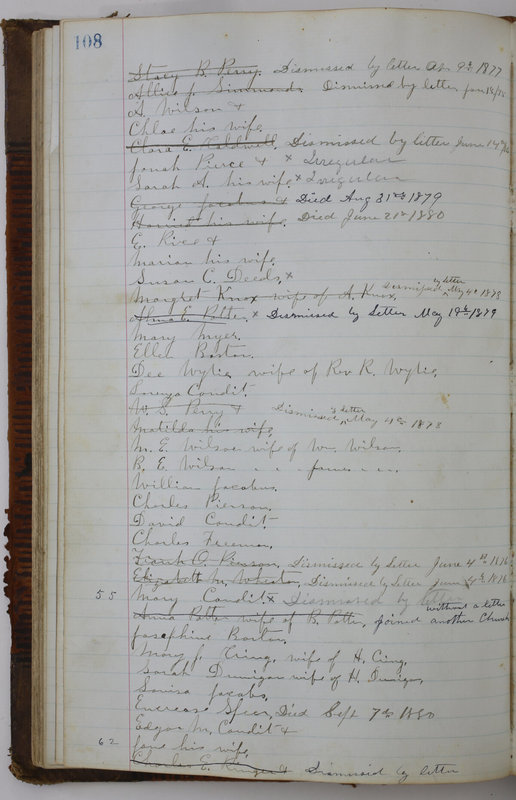 108
Stacy B. Perry. Dismissed by letter Ap. 9th 1877
Allie J. Simmonds. Dismissed by letter Jan 18/
A. Wilson &
Chloe his wife,
Clara E. Caldwell, Dismissed by letter June 14th/
Josiah Pierce & x Irregular
Sarah A. his wife x Irregular
George Jacobus & Died Aug 31st 1879
Harriet his wife. Died June 21st 1880
E. Rice &
Marian his wife,
Susan C. Deeds, x
Margret Knox wife of A. Knox, dismissed by letter May 4th 1878
E. Potter. x Dismissed by Letter May 18th 1879
Mary Myer.
Ellen Boston.
Dee Wylie wife of Rev R. Wylie,
Lorenzo Condit.
W. S. Perry & Dismissed by letter May 4th 1878
Matilda his wife,
M. E. Wilson wife of Wm. Wilson.
R. E. Wilson . . . James . . . .
William Jacobus,
Charles Pierson,
David Condit.
Charles Freeman,
Frank O. Pierson, Dismissed by Letter June 4th 1876
Elizabeth M. Wheaton, Dismissed by Letter June 4th 1876
55 Mary Condit. x Dismissed by letter
Anna Potter wife of B. Potter, joined another Church without a letter
Josephine Boston,
Mary J. Cring, wife of H. Cring,
Sarah Dunigan wife of H. Dunigan,
Louisa Jacobs,
Encrease Speer, Died Sept 7th 1880
Edgar M. Condit &
62 Jane his wife,
Charles E. & Dismissed by letter